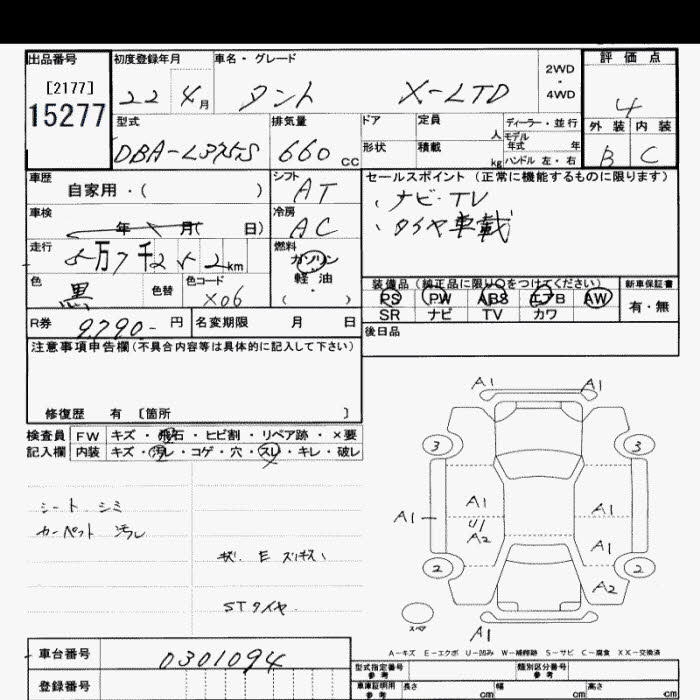 出品番号
[2177]
15277
初度登録年月
22 4月
車名・グレード
タント X-LTD
2WD
・
4WD
評価点
4
外装 内装
B C
型式
DBA-L375S
排気量
660 CC
ドア
形状
定員
人
積載
kg
ディーラー・並行
モデル
年式 年
ハンドル 左・右
車歴
自家用・( )
シフト
AT
セールスポイント (正常に機能するものに限ります)
、ナビ・TV
、タイヤ車載
車検
年 月( 日)
冷房
AC
走行
5万7千252km
燃料
ガソリン
軽油
( )
色
黒
色替
色コード
X06
装備品 (純正品に限り○をつけてください)
PS PW ABS エアB AW
SR ナビ TV カワ
新車保証書
有・無
R券 9,790- 円
名変期限 月 日
後日品
注意事項申告欄(不具合内容等は具体的に記入して下さい)
修復歴 有 〔箇所 〕
検査員 FW キズ・飛石・ヒビ割・リペア跡・×要
記入欄 内装 キズ・汚レ・コゲ・穴・スレ・キレ・破レ
シート シミ
カーペット 汚レ
STタイヤ
A1 A1
3 3
A1 A1 A1
U1
A2 A1
2 2
A2
スペア
A1
A-キズ E-エクボ U-凹み W-補修跡 S-サビ C-腐食 XX-交換済
車台番号 0301094
登録番号
型式指定番号
参考
類別区分番号
参考
車庫証明用
参考
長さ cm
幅 cm
高さ cm